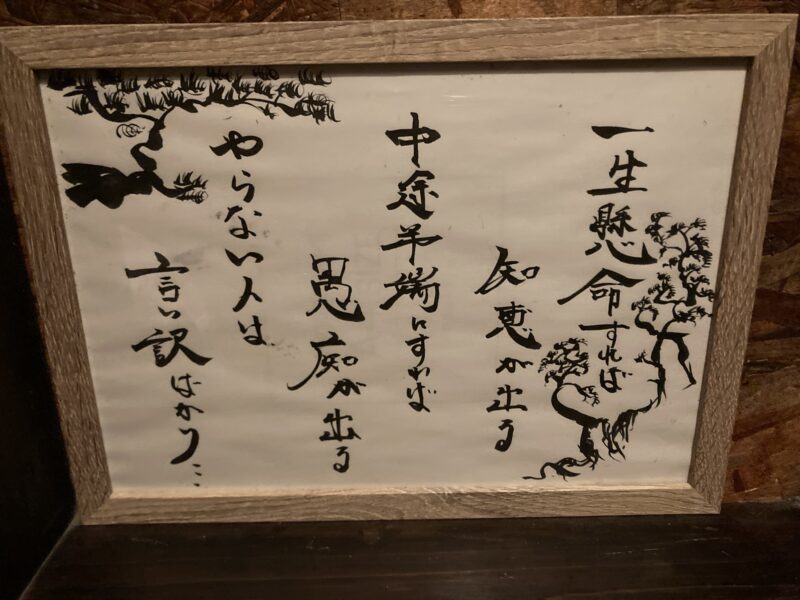 一生懸命すれば
知恵が出る
中途半端にすれば
愚痴が出る
やらない人は
言い訳ばかり..